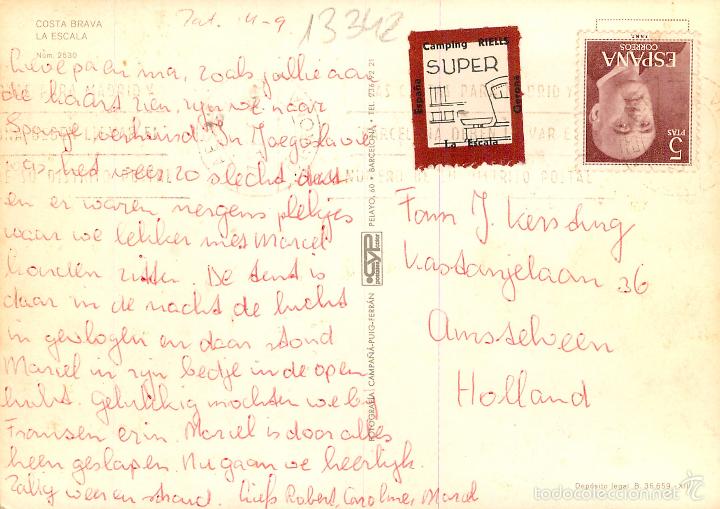 COSTA BRAVA
LA ESCALA
Núm. 2630
Zat. 4-9
13342
Lieve pa en ma, zoals jullie aan
de kaart zien, zijn we naar
Spanje verhuisd. In Joegoslavie
was het weer zo slecht, dat
en er waren nergens plekjes
waar we lekker met Marcel
konden zitten. De tent is
daar in de nacht de lucht
in gevlogen en daar stond
Marcel in zijn bedje in de open
lucht. Gelukkig mochten we bij
Fransen erin. Marcel is door alles
heen geslapen. Nu gaan we heerlijk
zalig weer en strand. Liefs Robert, Caroline, Marcel
FOTOGRAFIA CAMPAÑA-PUIG-FERRÁN
CYP
PELAYO, 60 • BARCELONA • TEL.
Camping RIELLS
SUPER
España
Gerona
La Escala
ESPAÑA
CORREOS
5
PTAS
Fam J. Kersting
Kastanjelaan 36
Amstelveen
Holland
Depósito legal B. 36.659 - XIV
todocoleccion.net